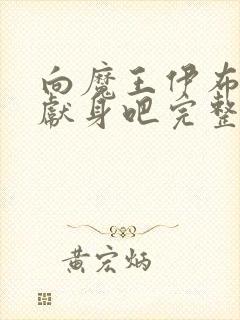 向魔王伊布
献身吧完整
黄宏炳